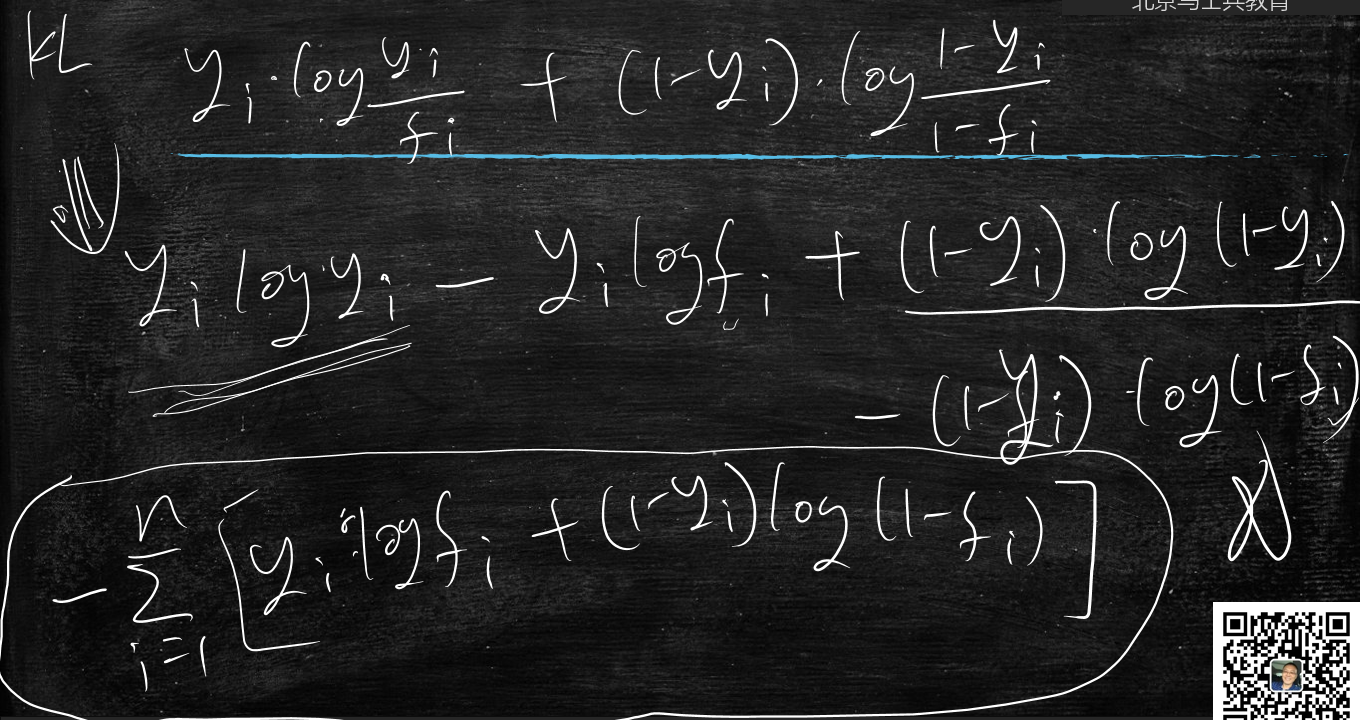 北京马士兵教育
KL
y_i · log y_i/f_i + (1-y_i) · log (1-y_i)/(1-f_i)
y_i log y_i - y_i log f_i + (1-y_i) · log (1-y_i)
- (1-y_i) · log (1-f_i)
- ∑_{i=1}^{n} [ y_i · log f_i + (1-y_i) log (1-f_i) ]